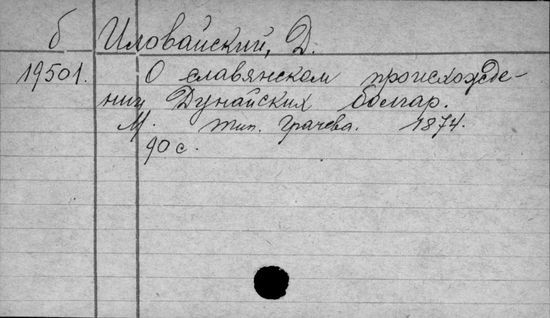 б Иловайский, Д.
19501. О славянском происхожде-
нии Дунайских болгар.
М. тип. Грачева. 1874.
90 с.